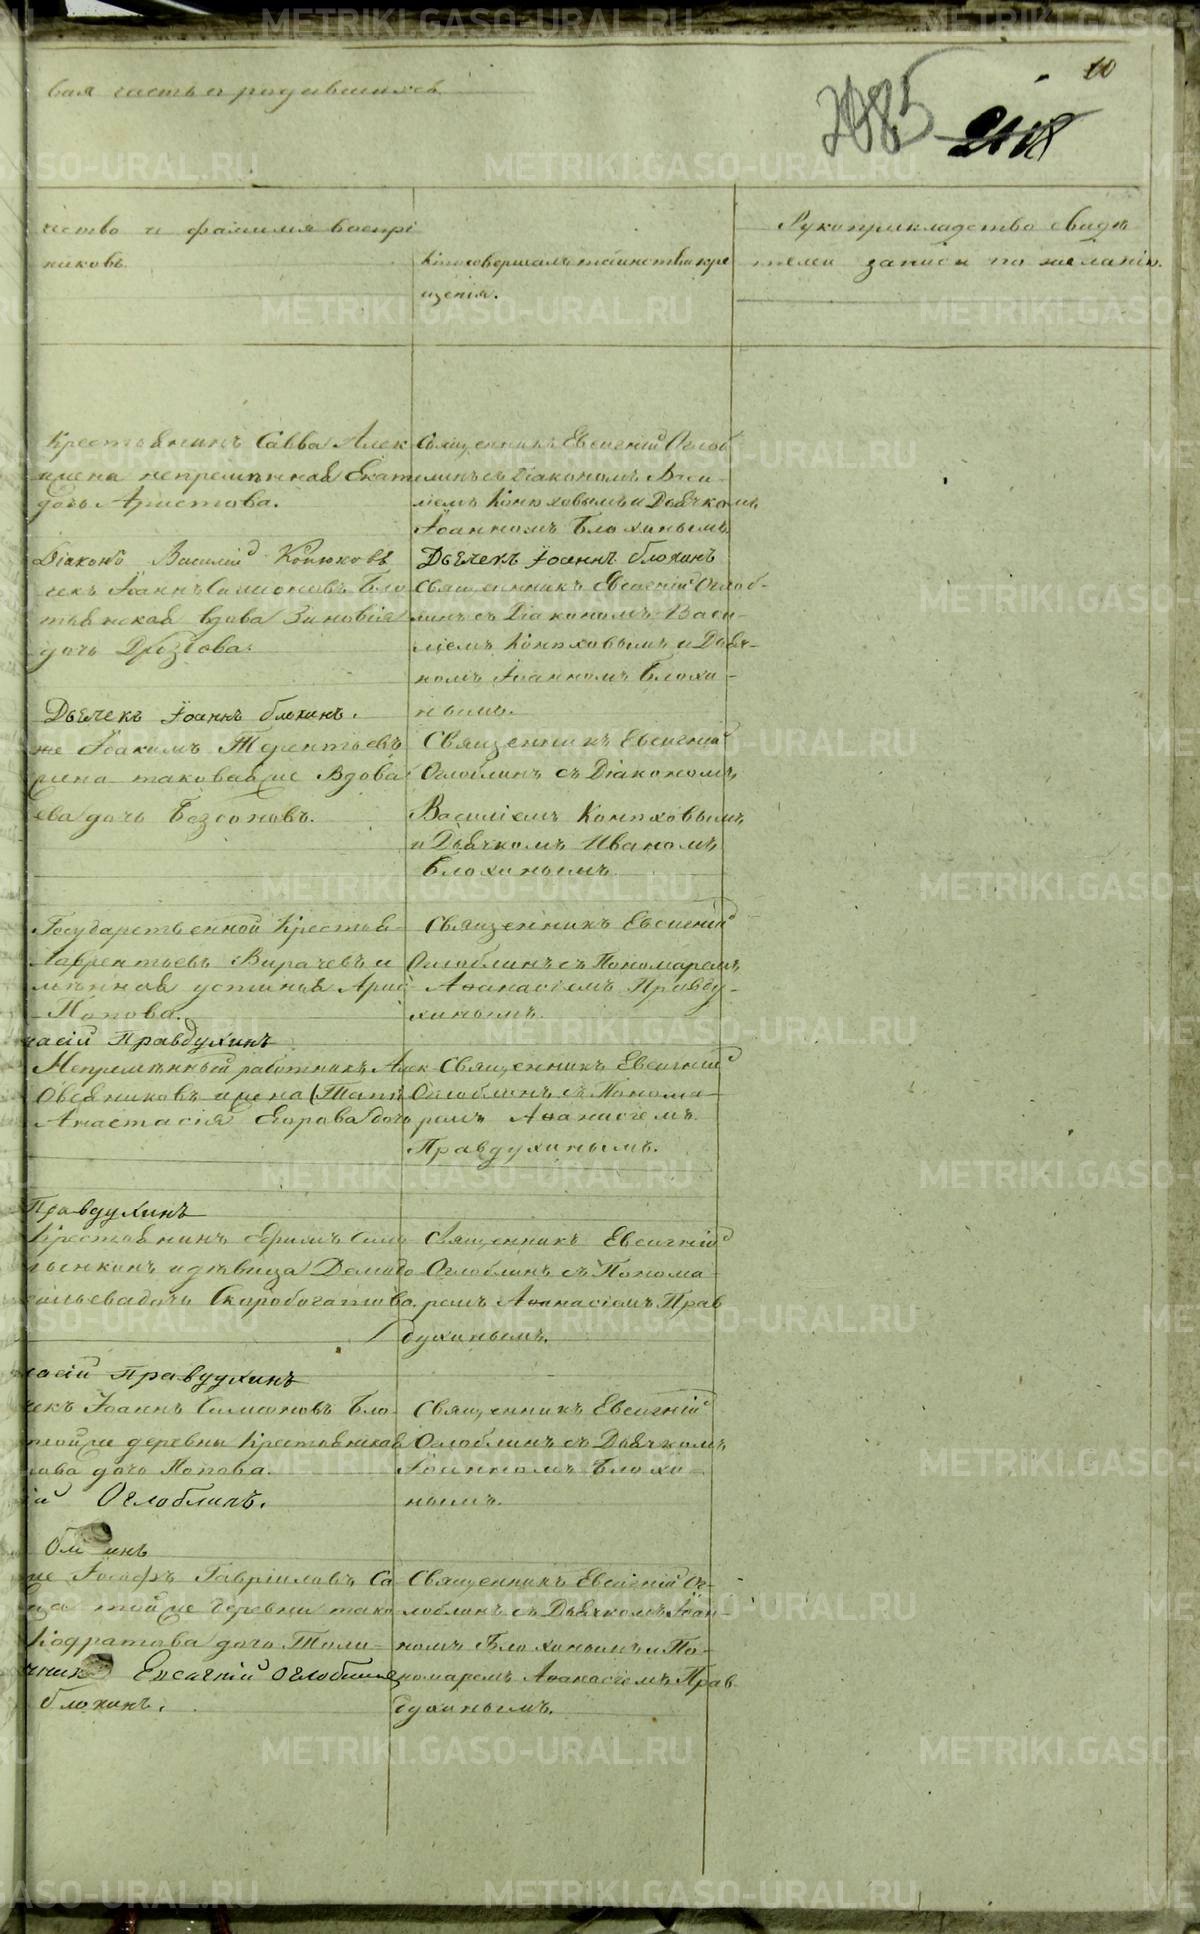 10
вая часть о родившихся
2085
чество и фамилия воспрі
никовъ.
Кто совершалъ таинство кре
щенія.
Рукоприкладство свидѣ
телей записи по желанію.
Крестьянинъ Савва Алек
жена непремѣннаго Екат
дочь Аристова.
Священникъ Евсигній Оглоб
линъ съ Діакономъ Васи
ліемъ Конюховымъ и Дьячкомъ
Іоанномъ Блохинымъ
Діаконъ Василій Конюховъ
Дьячекъ Іоаннъ Блохинъ
чекъ Іоаннъ Симеоновъ Бло
тьянская вдова Зиновія
дочь Дроздова.
Священникъ Евсигній Оглоб-
линъ съ Діакономъ Васи-
ліемъ Конюховымъ и Дьяч-
комъ Іоанномъ Блохи-
нымъ.
Дьячекъ Іоаннъ Блохинъ.
же Іоакимъ Терентьевъ
рена таковая же Вдова
ева дочь
Священникъ Евсигній
Оглоблинъ съ Діакономъ
Василіемъ Конюховымъ
и Дьячкомъ Иваномъ
Блохинымъ.
Государственной Крестья-
Лаврентьевъ Вирачевъ и
Устинья
Попова.
Священникъ Евсигній
Оглоблинъ съ Пономаремъ
Аѳанасіемъ Правду-
хинымъ.
насій Правдухинъ
Непремѣнный работникъ Алек
Овсяниковъ и жена
Анастасія Егорова дочь
Священникъ Евсигній
Оглоблинъ съ Понома-
ремъ Аѳанасіемъ
Правдухинымъ.
Правдухинъ
Крестьянинъ Ефимъ
и дѣвица
сильева дочь Скоробогатова.
Священникъ Евсигній
Оглоблинъ съ Понома-
ремъ Аѳанасіемъ Прав
духинымъ.
насій Правдухинъ
чекъ Іоаннъ Симеоновъ Бло-
той же деревни Крестьянская
лова дочь Попова.
ій Оглоблинъ.
Священникъ Евсигній
Оглоблинъ съ Дьячкомъ
Іоанномъ Блохи-
нымъ.
же Іосифъ Гавріиловъ Са
ца той же деревни тако
Кодратова дочь
нникъ Евсигній Оглоблинъ
Блохинъ.
Священникъ Евсигній Ог-
лоблинъ съ Дьячкомъ Іоан-
номъ Блохинымъ и По-
номаремъ Аѳанасіемъ Прав
духинымъ.